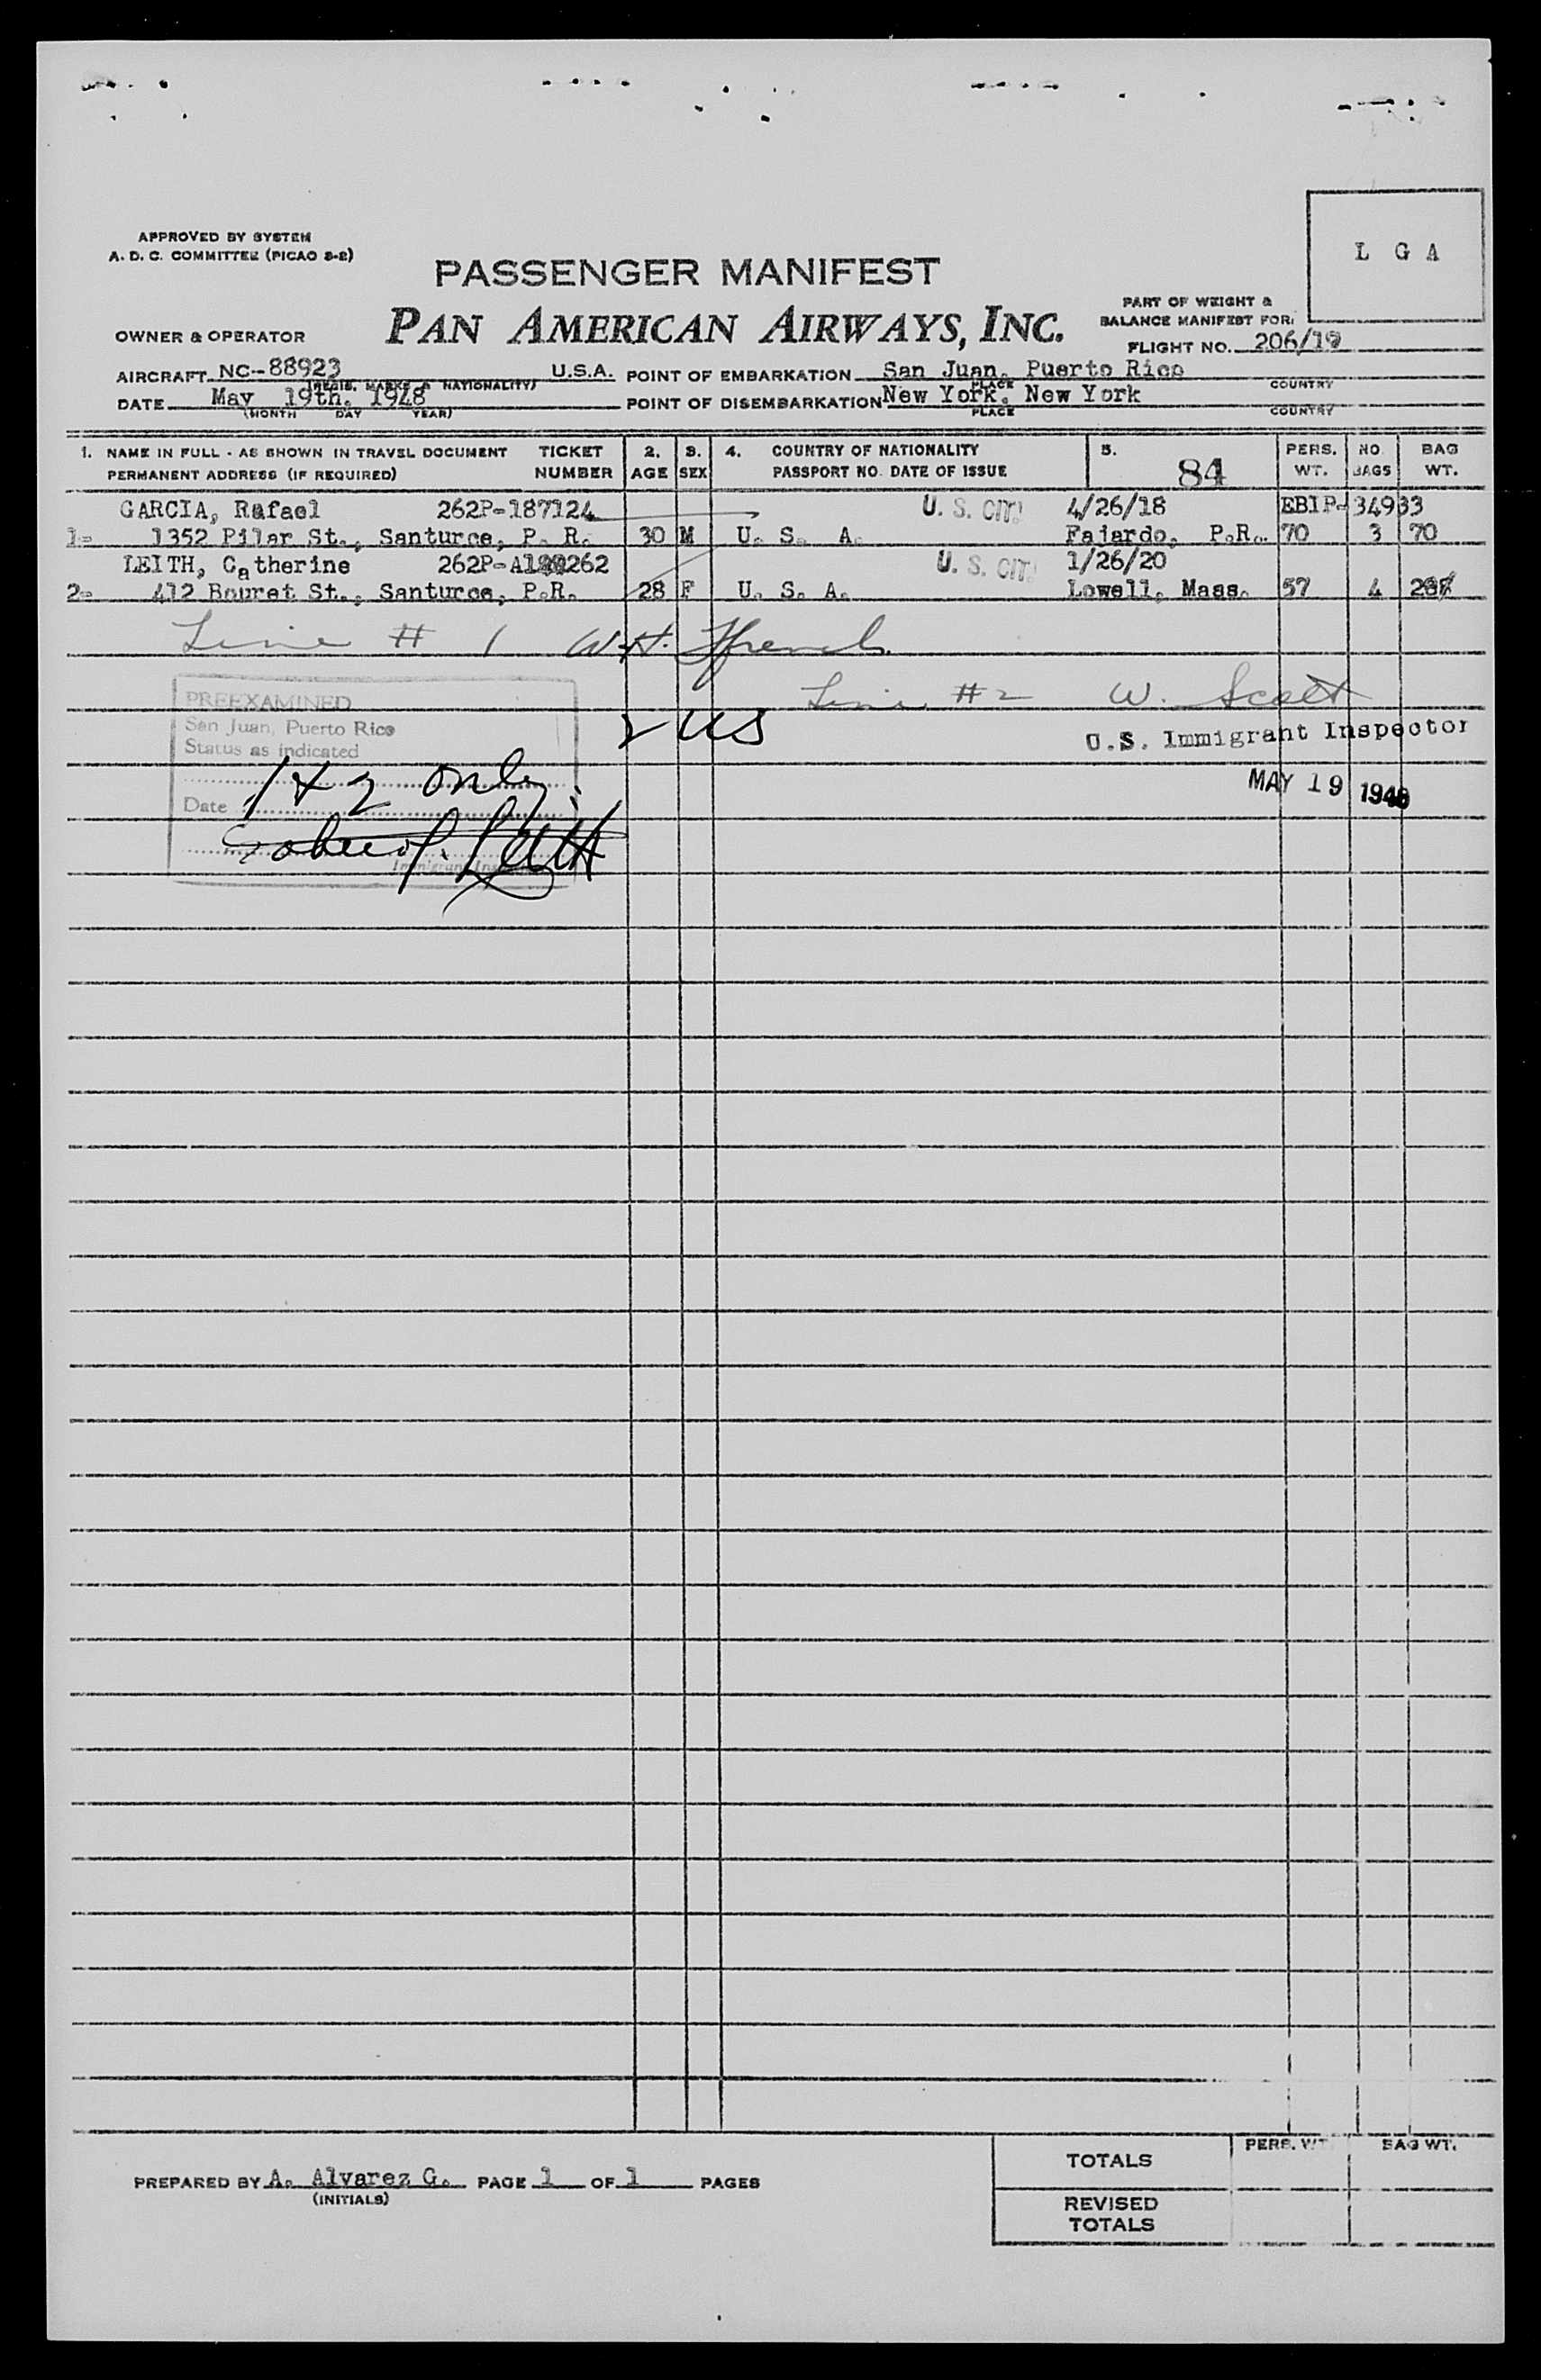 APPROVED BY SYSTEM
A. D. C. COMMITTEE (PICAO 8-2)
L G A
PASSENGER MANIFEST
PAN AMERICAN AIRWAYS, INC.
PART OF WEIGHT &
BALANCE MANIFEST FOR:
OWNER & OPERATOR
FLIGHT NO. 206/19
AIRCRAFT NC--88923 U.S.A. POINT OF EMBARKATION San Juan, Puerto Rico
(REGIS. MARKS & NATIONALITY) PLACE COUNTRY
DATE May 19th. 1948 POINT OF DISEMBARKATION New York, New York
(MONTH DAY YEAR) PLACE COUNTRY
1. NAME IN FULL - AS SHOWN IN TRAVEL DOCUMENT TICKET 2. 3. 4. COUNTRY OF NATIONALITY 5. PERS. NO. BAG
PERMANENT ADDRESS (IF REQUIRED) NUMBER AGE SEX PASSPORT NO. DATE OF ISSUE 84 WT. BAGS WT.
GARCIA, Rafael 262P-187124 U. S. CIT. 4/26/18 EBIP-34933
1- 1352 Pilar St., Santurce, P. R. 30 M U. S. A. Fajardo, P.R. 70 3 70
LEITH, Catherine U. S. CIT. 1/26/20
2- 412 Bouret St., Santurce, P.R. 28 F U. S. A. Lowell, Mass. 57 4
Line # 1 W.H. French
PREEXAMINED
Line #2 W. Scott
San Juan, Puerto Rico
2 US
U.S. Immigrant Inspector
Status as indicated
1 & 2 only.
MAY 19 1948
Date
Immigrant Inspector
PREPARED BY A. Alvarez G. PAGE 1 OF 1 PAGES
(INITIALS)
PERS. WT. BAG WT.
TOTALS
REVISED
TOTALS